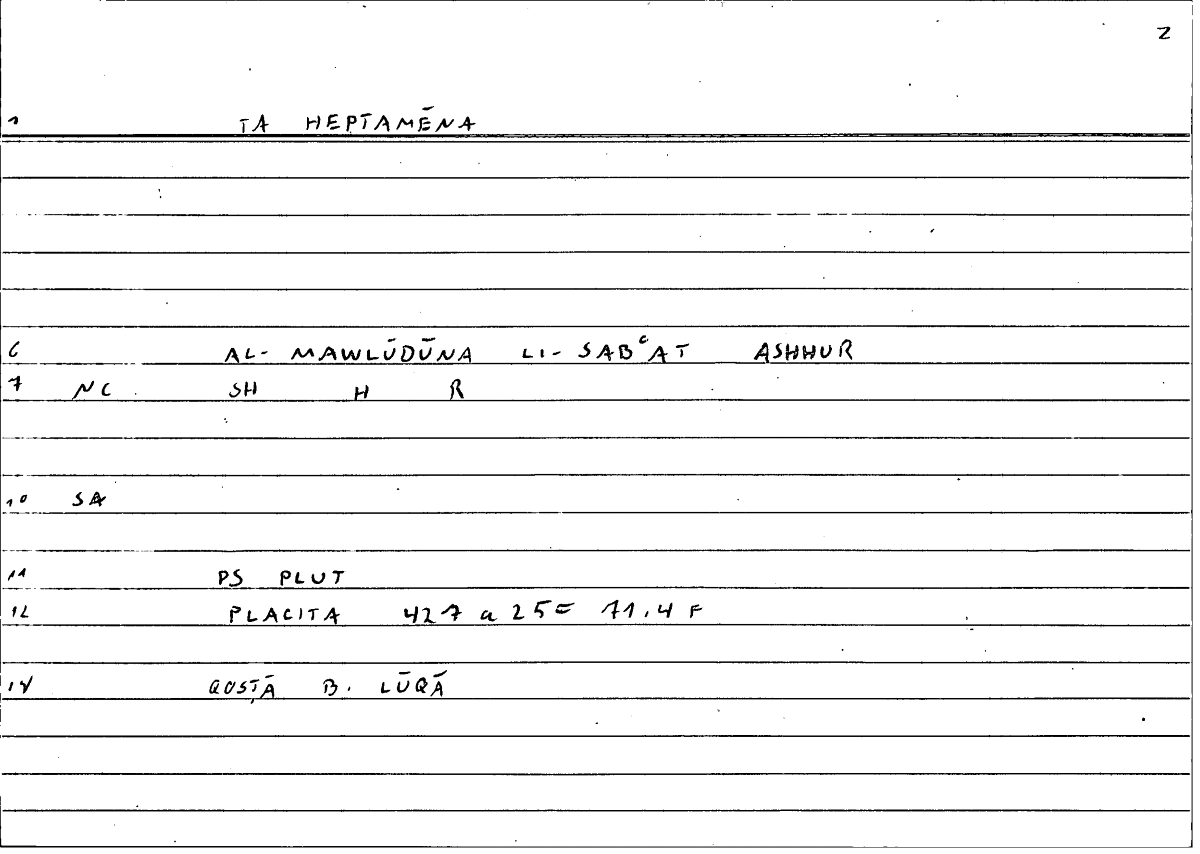 2
1 TA HEPTAMĒNA
6 AL- MAWLŪDŪNA LI- SABᶜAT ASHHUR
7 NC SH H R
10 SA
11 PS PLUT
12 PLACITA 427 a 25 = 71.4 F
14 QUSṬĀ B. LŪQĀ